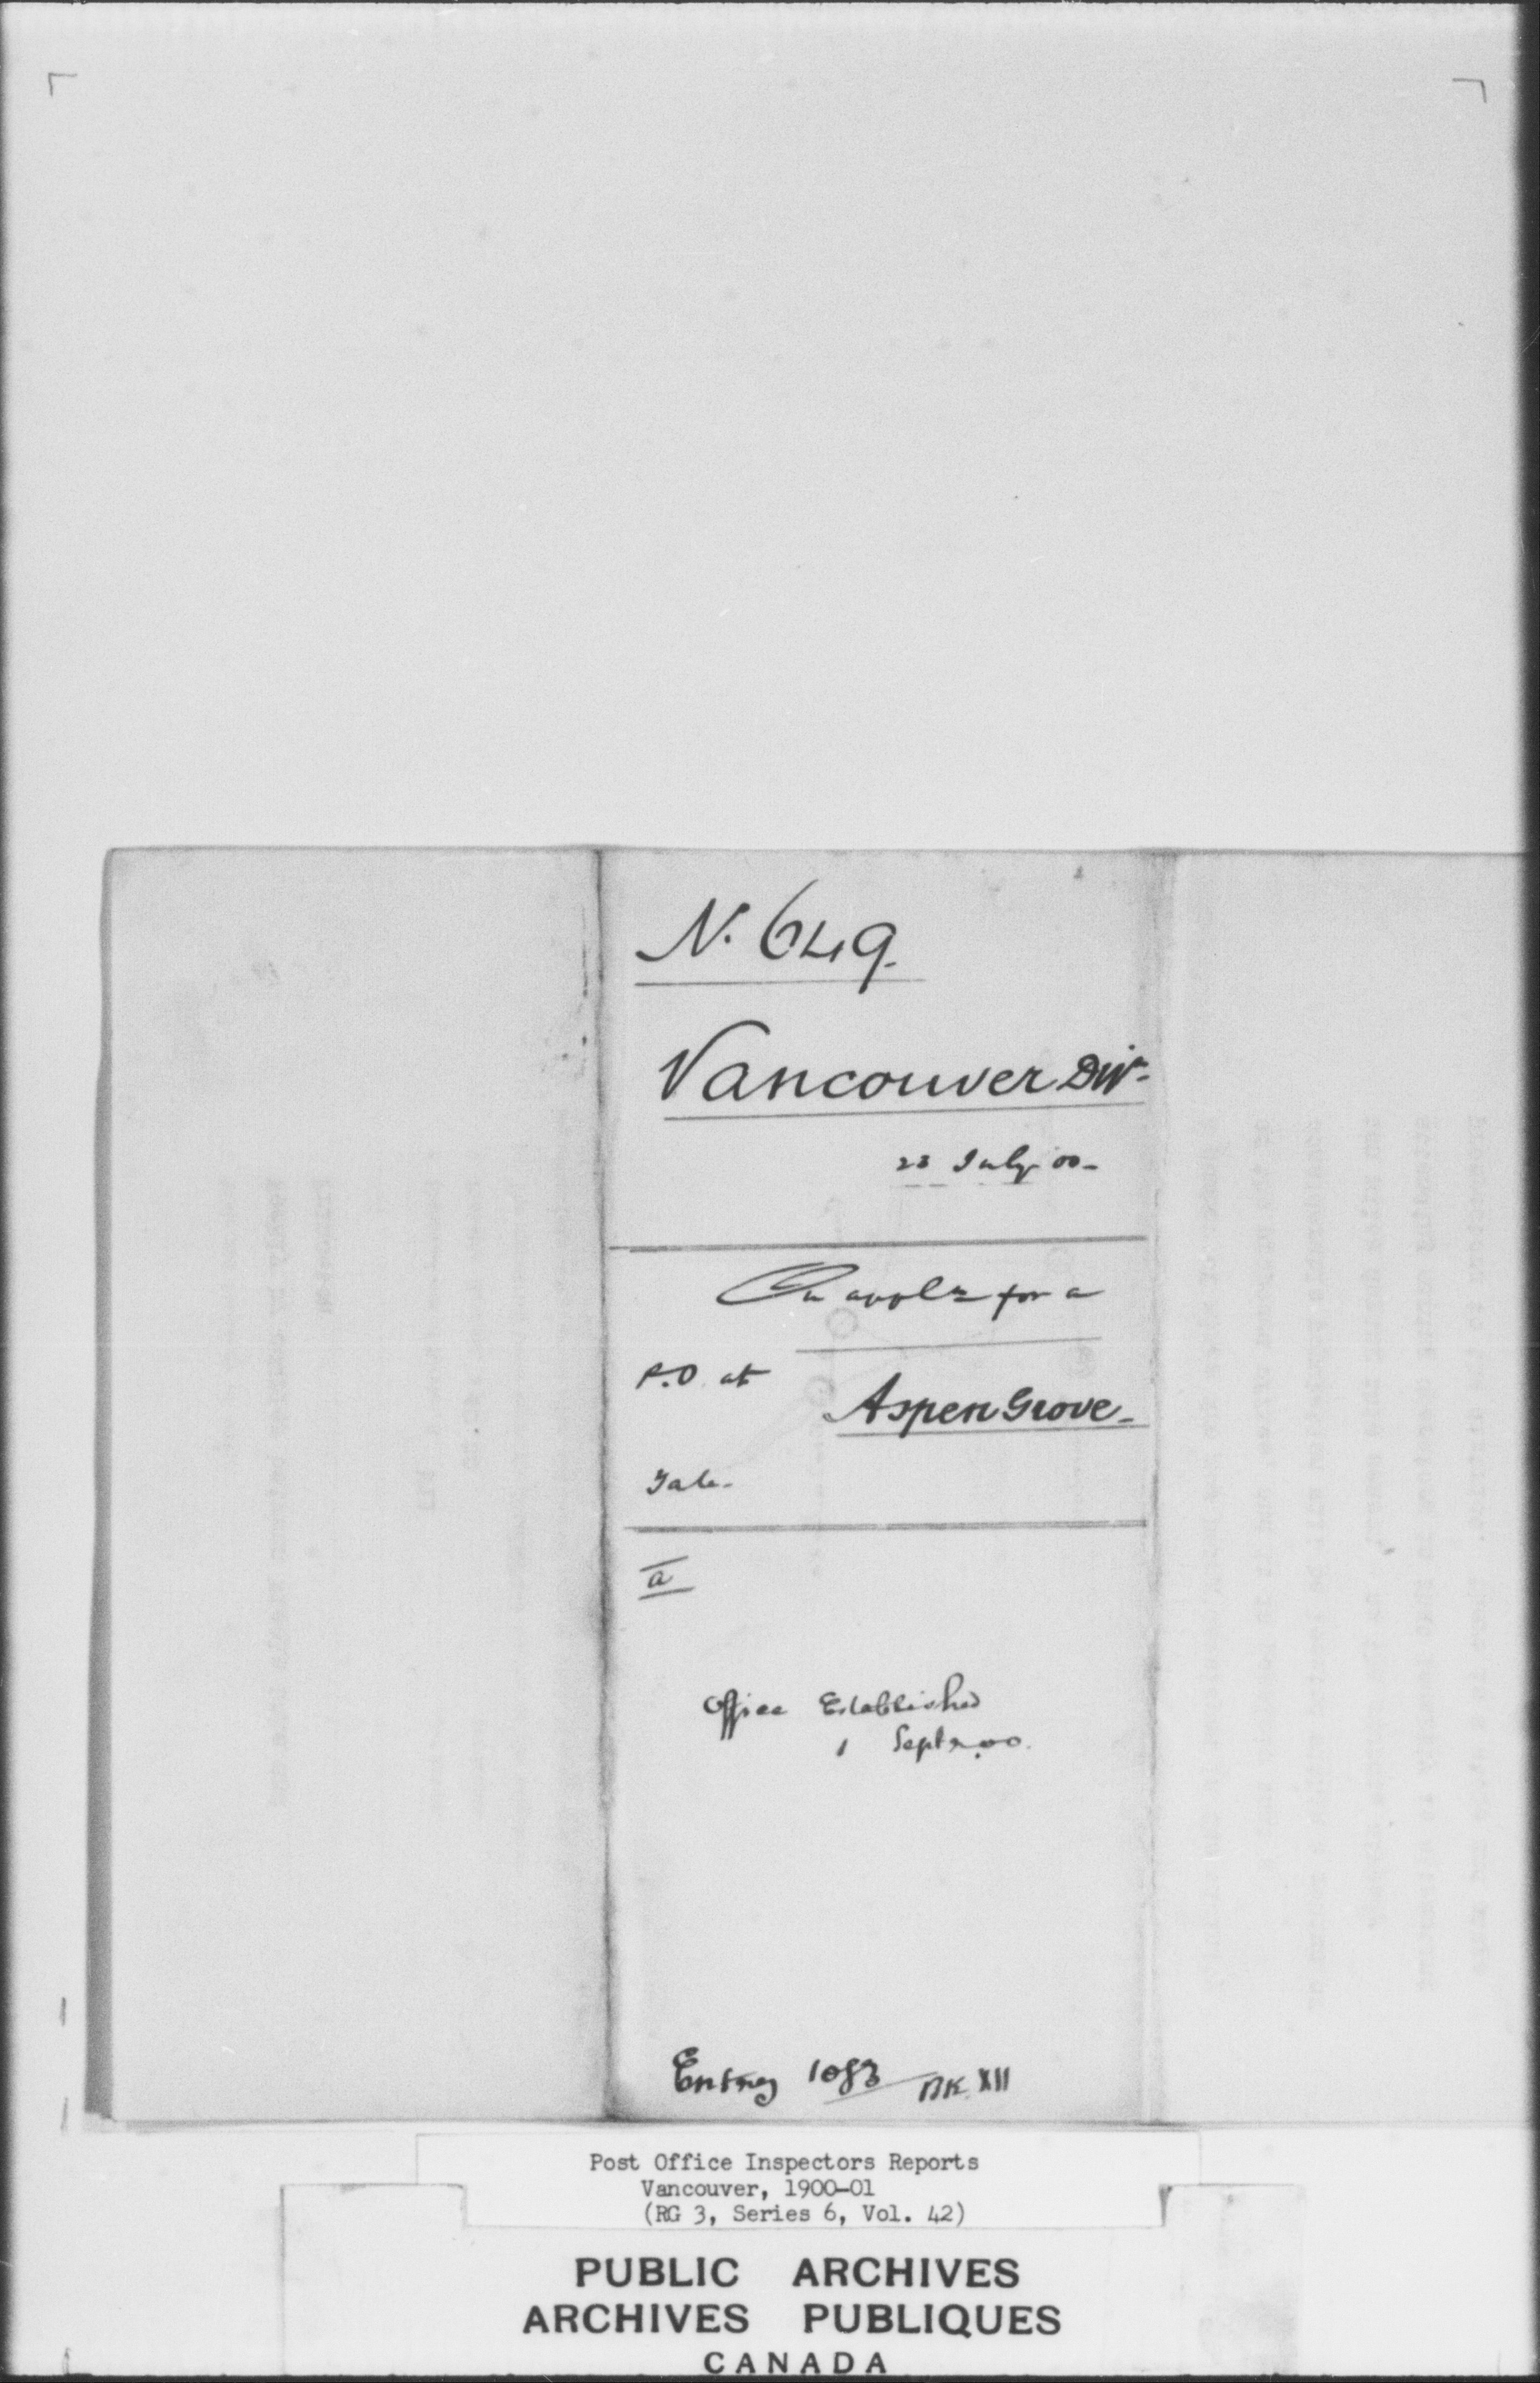 N. 649.
Vancouver Div.
23 July 00-
On appln for a
P.O. at
Aspen Grove-
Yale-
a
Office Established
1 Septr 00.
Entry 1083 BK. XII
Post Office Inspectors Reports
Vancouver, 1900-01
(RG 3, Series 6, Vol. 42)
PUBLIC ARCHIVES
ARCHIVES PUBLIQUES
CANADA